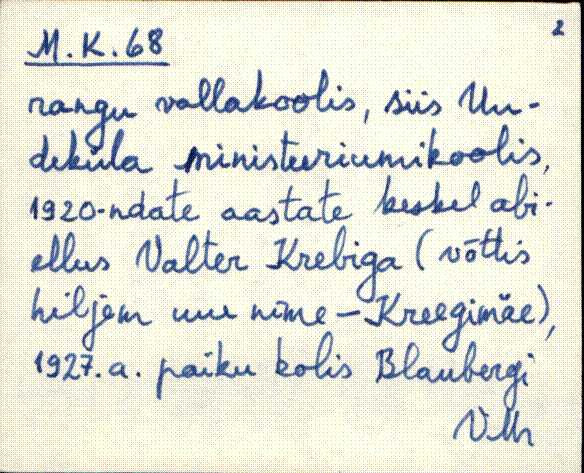 2
M.K.68
rangu vallakoolis, siis Uu-
deküla ministeeriumikoolis,
1920-ndate aastate keskel abi-
ellus Valter Krebiga (võttis
hiljem uue nime – Kreegimäe),
1927.a. paiku kolis Blaubergi
VMr